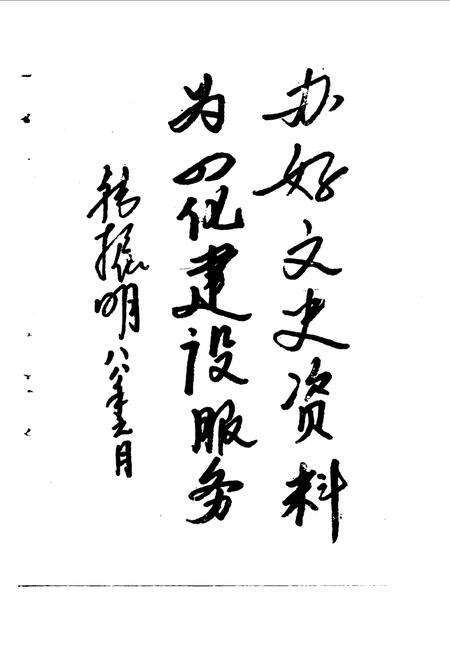 办好文史资料
为四化建设服务
振明八八年月